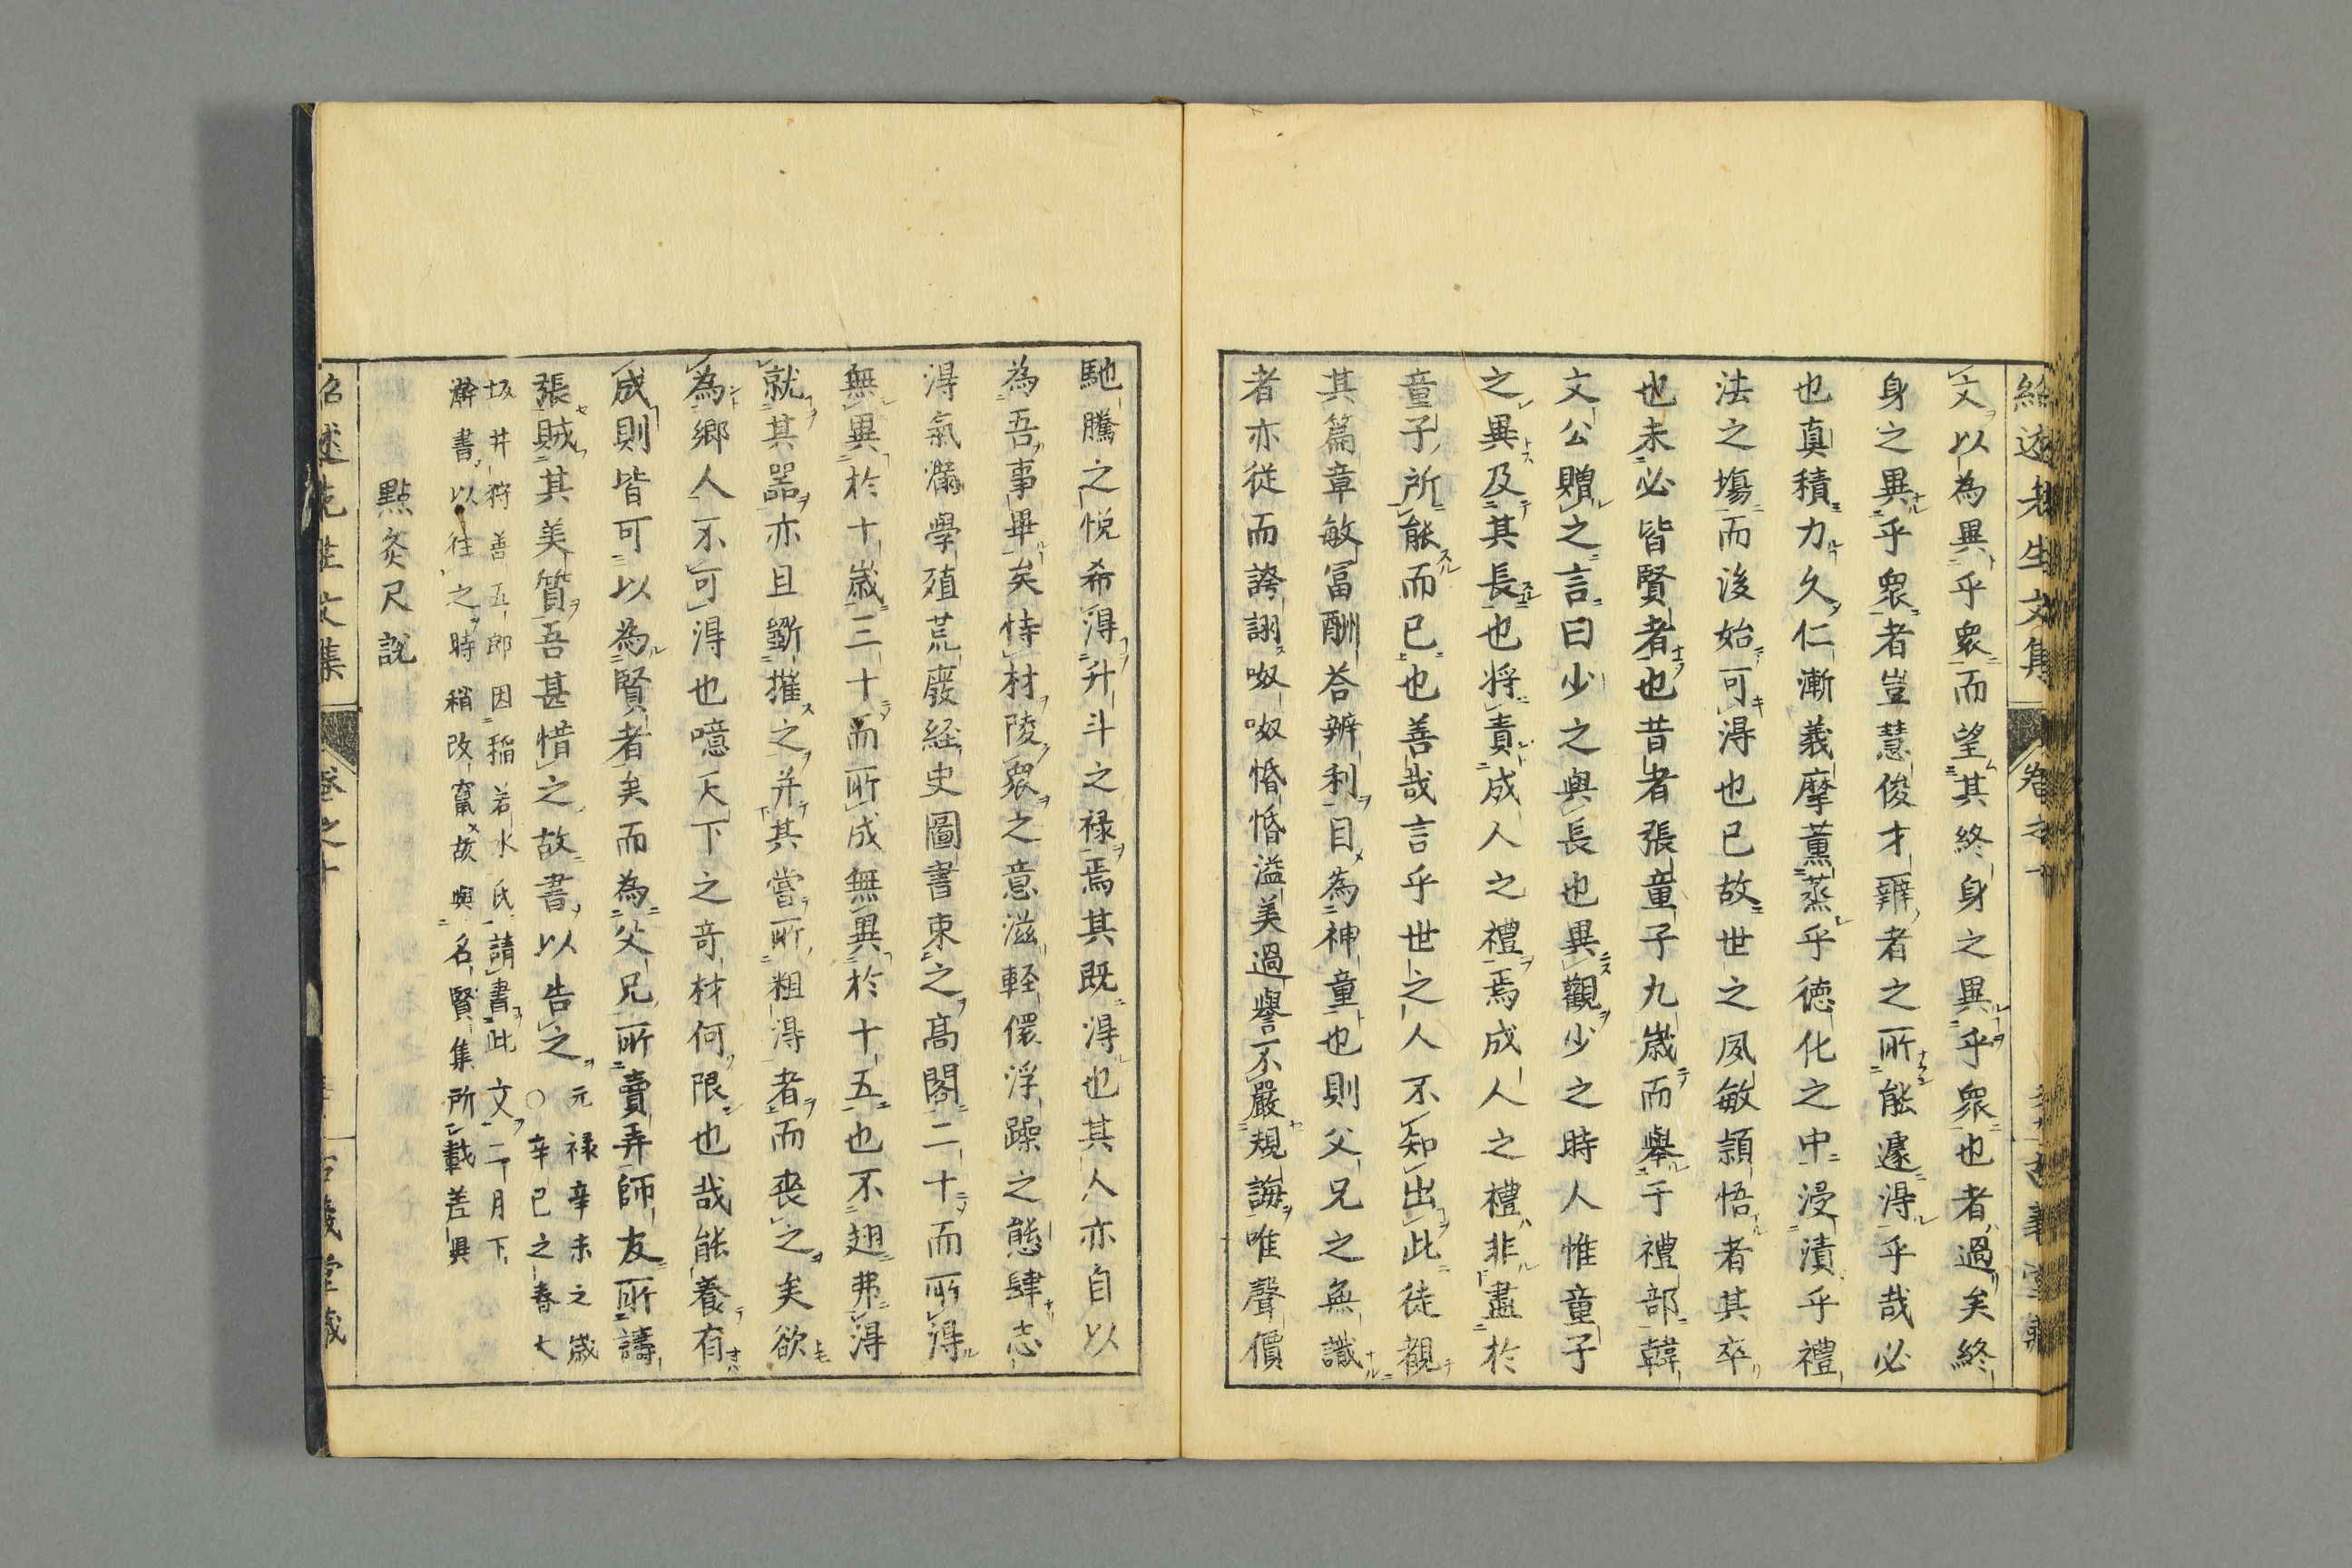 紹述先生文集 卷之十
文以為異乎衆而望其終身之異乎衆也者過矣終
身之異乎衆者豈慧俊才辨者之所能遽得乎哉必
也真積力久仁漸義摩薫蒸乎徳化之中浸漬乎禮
法之塲而後始可得也已故世之夙敏頴悟者其卒
也未必皆賢者也昔者張童子九歳而舉于禮部韓
文公贈之言曰少之與長也異觀少之時人惟童子
之異及其長也将責成人之禮焉成人之禮非盡於
童子所能而已也善哉言乎世之人不知出此徒観
其篇章敏冨酬荅辨利目為神童也則父兄之無識
者亦従而誇詡呶呶惛惛溢美過譽不嚴規誨唯聲價
馳騰之悦希得升斗之禄焉其既得也其人亦自以
為吾事畢矣恃材陵衆之意滋軽儇浮躁之態肆志
得氣滿學殖荒廢経史圖書束之高閣二十而所得
無異於十歳三十而所成無異於十五也不翅弗得
就其器亦且斵摧之并其嘗所粗得者而喪之矣欲
為郷人不可得也噫天下之竒材何限也哉能養有
成則皆可以為賢者矣而為父兄所賣弄師友所譸
張賊其美質吾甚惜之故書以告之 元禄辛未之歳
○辛巳之春大
坂井狩善五郎因稲若水氏請書此文二月下
澣書以徃之時稍改竄故與名賢集所載差異
點灸尺説
紹述先生文集 卷之十 古義堂藏